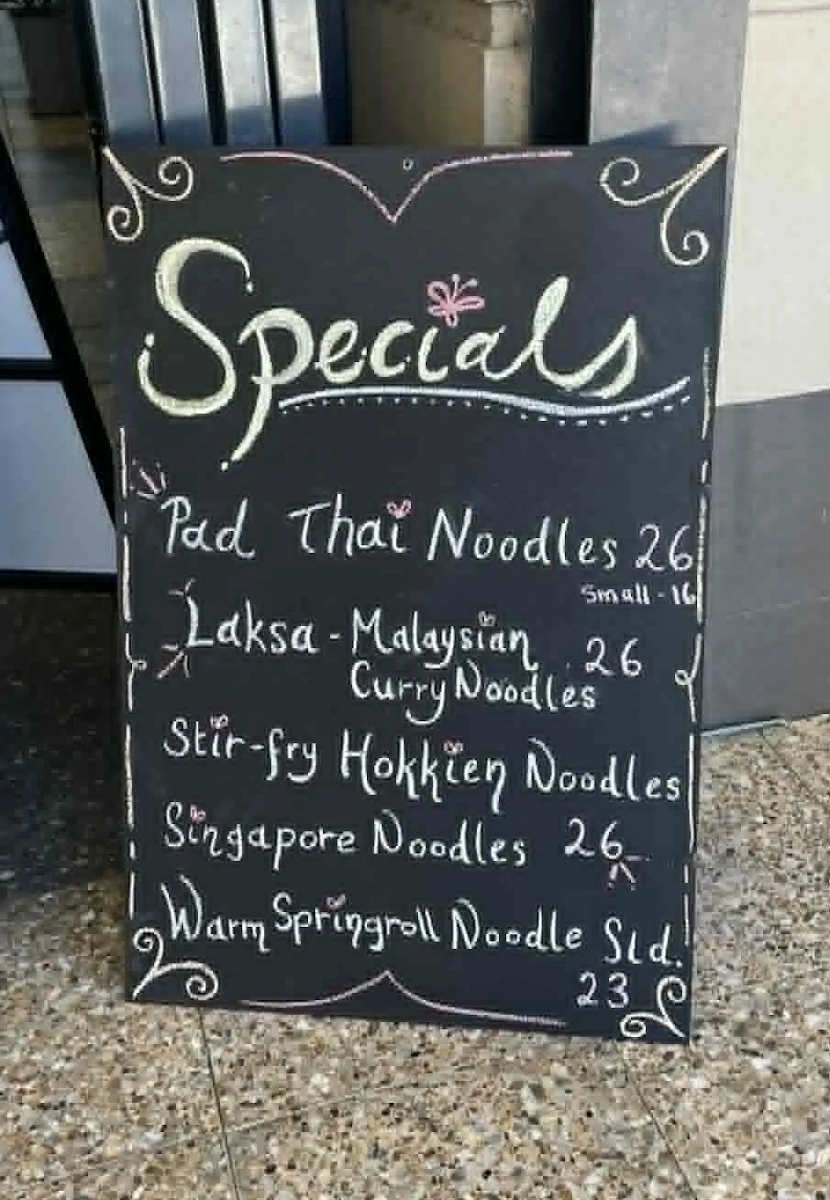 Specials
Pad Thai Noodles 26
Small - 16
Laksa - Malaysian 26
Curry Noodles
Stir-fry Hokkien Noodles
Singapore Noodles 26
Warm Springroll Noodle Sld.
23